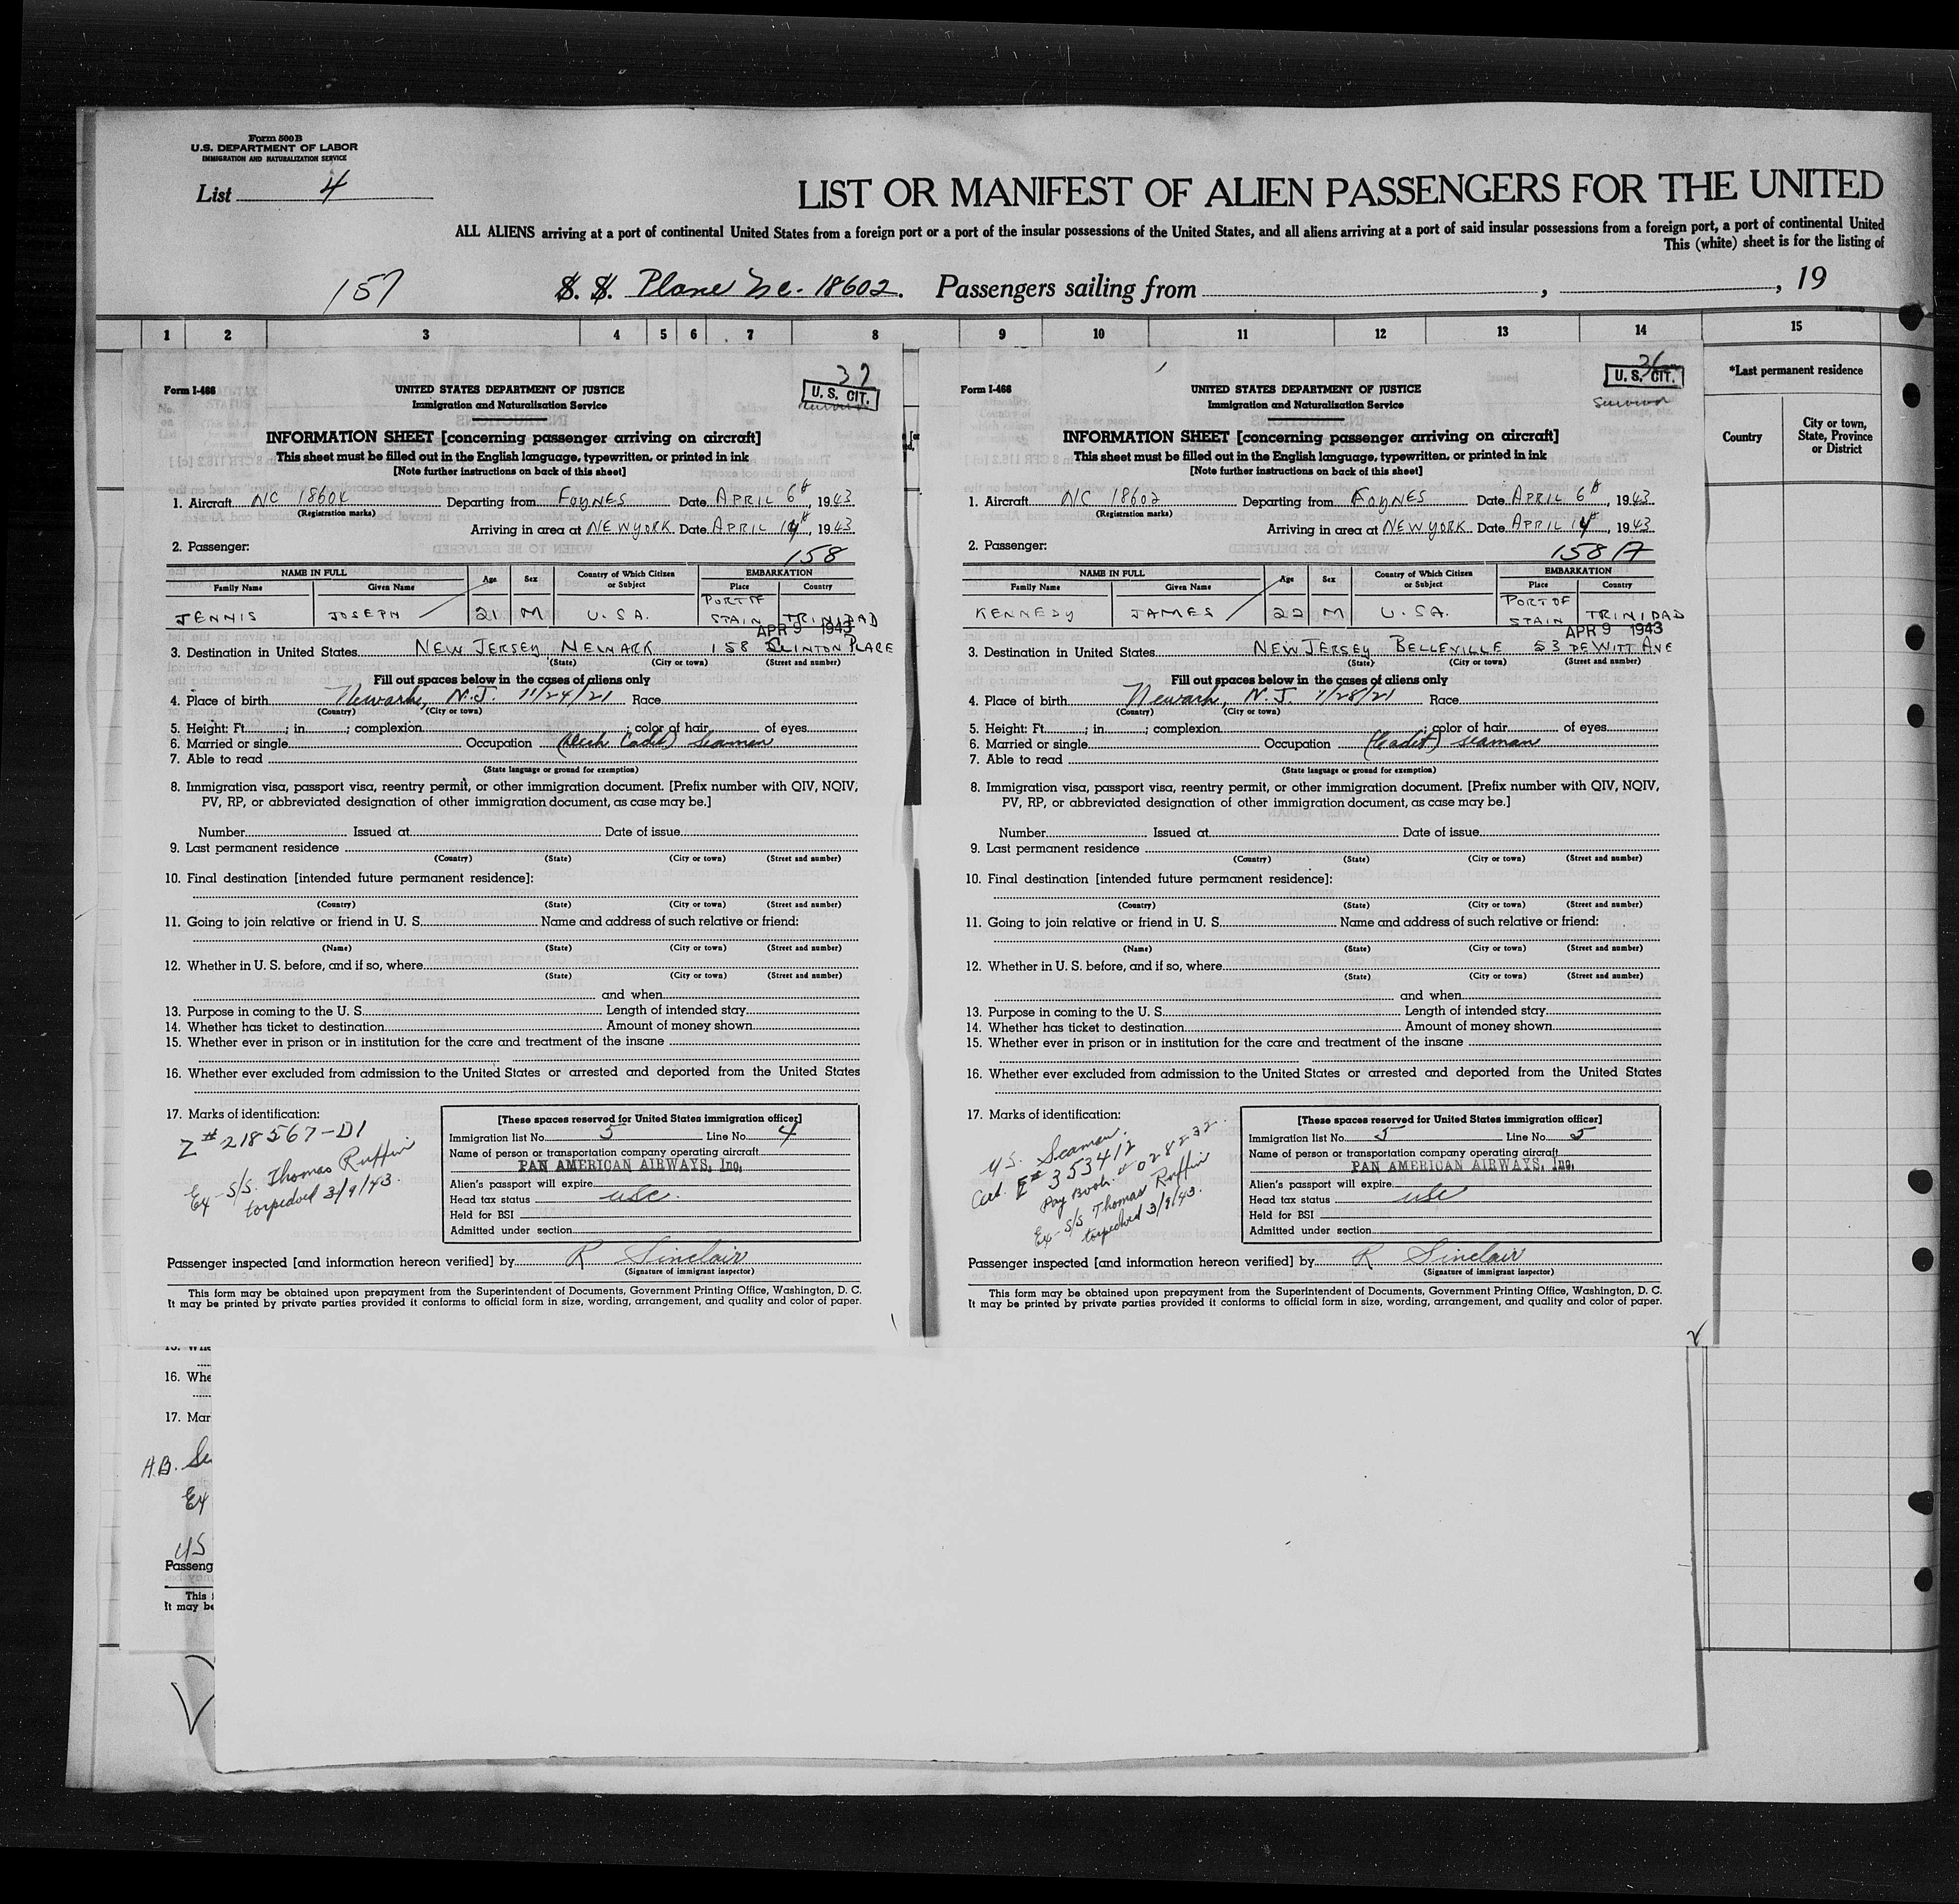 Form 500B
U.S. DEPARTMENT OF LABOR
IMMIGRATION AND NATURALIZATION SERVICE
List 4
LIST OR MANIFEST OF ALIEN PASSENGERS FOR THE UNITED
ALL ALIENS arriving at a port of continental United States from a foreign port or a port of the insular possessions of the United States, and all aliens arriving at a port of said insular possessions from a foreign port, a port of continental United
This (white) sheet is for the listing of
157 S. S. Plane Nc. 18602. Passengers sailing from , , 19
1 2 3 4 5 6 7 8 9 10 11 12 13 14 15
*Last permanent residence
Country
City or town,
State, Province
or District
37
Form I-466
UNITED STATES DEPARTMENT OF JUSTICE
U. S. CIT.
Immigration and Naturalization Service
INFORMATION SHEET [concerning passenger arriving on aircraft]
This sheet must be filled out in the English language, typewritten, or printed in ink
[Note further instructions on back of this sheet]
1. Aircraft NC 18604 Departing from FOYNES Date APRIL 6th, 1943
(Registration marks)
Arriving in area at NEW YORK Date APRIL 14th, 1943
2. Passenger:
158
NAME IN FULL Age Sex Country of Which Citizen or Subject EMBARKATION
Family Name Given Name Place Country
JENNIS JOSEPH 21 M U.S.A. PORT OF STAIN TRINIDAD
APR 9 1943
3. Destination in United States NEW JERSEY NEWARK 158 CLINTON PLACE
(State) (City or town) (Street and number)
Fill out spaces below in the cases of aliens only
4. Place of birth Newark, N.J. 11/24/21 Race
(Country) (City or town)
5. Height: Ft. ; in. ; complexion ; color of hair of eyes
6. Married or single Occupation (Deck Cadet) Seaman
7. Able to read
(State language or ground for exemption)
8. Immigration visa, passport visa, reentry permit, or other immigration document. [Prefix number with QIV, NQIV,
PV, RP, or abbreviated designation of other immigration document, as case may be.]
Number Issued at Date of issue
9. Last permanent residence
(Country) (State) (City or town) (Street and number)
10. Final destination [intended future permanent residence]:
(Country) (State) (City or town) (Street and number)
11. Going to join relative or friend in U. S. Name and address of such relative or friend:
(Name) (State) (City or town) (Street and number)
12. Whether in U. S. before, and if so, where
(State) (City or town) (Street and number)
and when
13. Purpose in coming to the U. S. Length of intended stay
14. Whether has ticket to destination Amount of money shown
15. Whether ever in prison or in institution for the care and treatment of the insane
16. Whether ever excluded from admission to the United States or arrested and deported from the United States
17. Marks of identification:
Z# 218567-D1
Ex-S/S. Thomas Ruffin
torpedoed 3/9/43.
[These spaces reserved for United States immigration officer]
Immigration list No. 5 Line No. 4
Name of person or transportation company operating aircraft
PAN AMERICAN AIRWAYS, Inc.
Alien's passport will expire
Head tax status usc.
Held for BSI
Admitted under section
Passenger inspected [and information hereon verified] by R Sinclair
(Signature of immigrant inspector)
This form may be obtained upon prepayment from the Superintendent of Documents, Government Printing Office, Washington, D. C.
It may be printed by private parties provided it conforms to official form in size, wording, arrangement, and quality and color of paper.
36
Form I-466
UNITED STATES DEPARTMENT OF JUSTICE
U. S. CIT.
Immigration and Naturalization Service
Survivor
INFORMATION SHEET [concerning passenger arriving on aircraft]
This sheet must be filled out in the English language, typewritten, or printed in ink
[Note further instructions on back of this sheet]
1. Aircraft NC 18602 Departing from FOYNES Date APRIL 6th, 1943
(Registration marks)
Arriving in area at NEW YORK Date APRIL 14th, 1943
2. Passenger:
158 A
NAME IN FULL Age Sex Country of Which Citizen or Subject EMBARKATION
Family Name Given Name Place Country
KENNEDY JAMES 22 M U.S.A. PORT OF STAIN TRINIDAD
APR 9 1943
3. Destination in United States NEW JERSEY BELLEVILLE 53 DEWITT AVE
(State) (City or town) (Street and number)
Fill out spaces below in the cases of aliens only
4. Place of birth Newark, N.J. 1/28/21 Race
(Country) (City or town)
5. Height: Ft. ; in. ; complexion ; color of hair of eyes
6. Married or single Occupation (Cadet) seaman
7. Able to read
(State language or ground for exemption)
8. Immigration visa, passport visa, reentry permit, or other immigration document. [Prefix number with QIV, NQIV,
PV, RP, or abbreviated designation of other immigration document, as case may be.]
Number Issued at Date of issue
9. Last permanent residence
(Country) (State) (City or town) (Street and number)
10. Final destination [intended future permanent residence]:
(Country) (State) (City or town) (Street and number)
11. Going to join relative or friend in U. S. Name and address of such relative or friend:
(Name) (State) (City or town) (Street and number)
12. Whether in U. S. before, and if so, where
(State) (City or town) (Street and number)
and when
13. Purpose in coming to the U. S. Length of intended stay
14. Whether has ticket to destination Amount of money shown
15. Whether ever in prison or in institution for the care and treatment of the insane
16. Whether ever excluded from admission to the United States or arrested and deported from the United States
17. Marks of identification:
US. Seaman.
Cert. E# 353412
Pay Book # 028232.
Ex-S/S Thomas Ruffin
torpedoed 3/9/43.
[These spaces reserved for United States immigration officer]
Immigration list No. 5 Line No. 5
Name of person or transportation company operating aircraft
PAN AMERICAN AIRWAYS, Inc.
Alien's passport will expire
Head tax status usc
Held for BSI
Admitted under section
Passenger inspected [and information hereon verified] by R Sinclair
(Signature of immigrant inspector)
This form may be obtained upon prepayment from the Superintendent of Documents, Government Printing Office, Washington, D. C.
It may be printed by private parties provided it conforms to official form in size, wording, arrangement, and quality and color of paper.
16. Whe
17. Mar
A.B. Se
Ex
US
Passeng
This
It may be